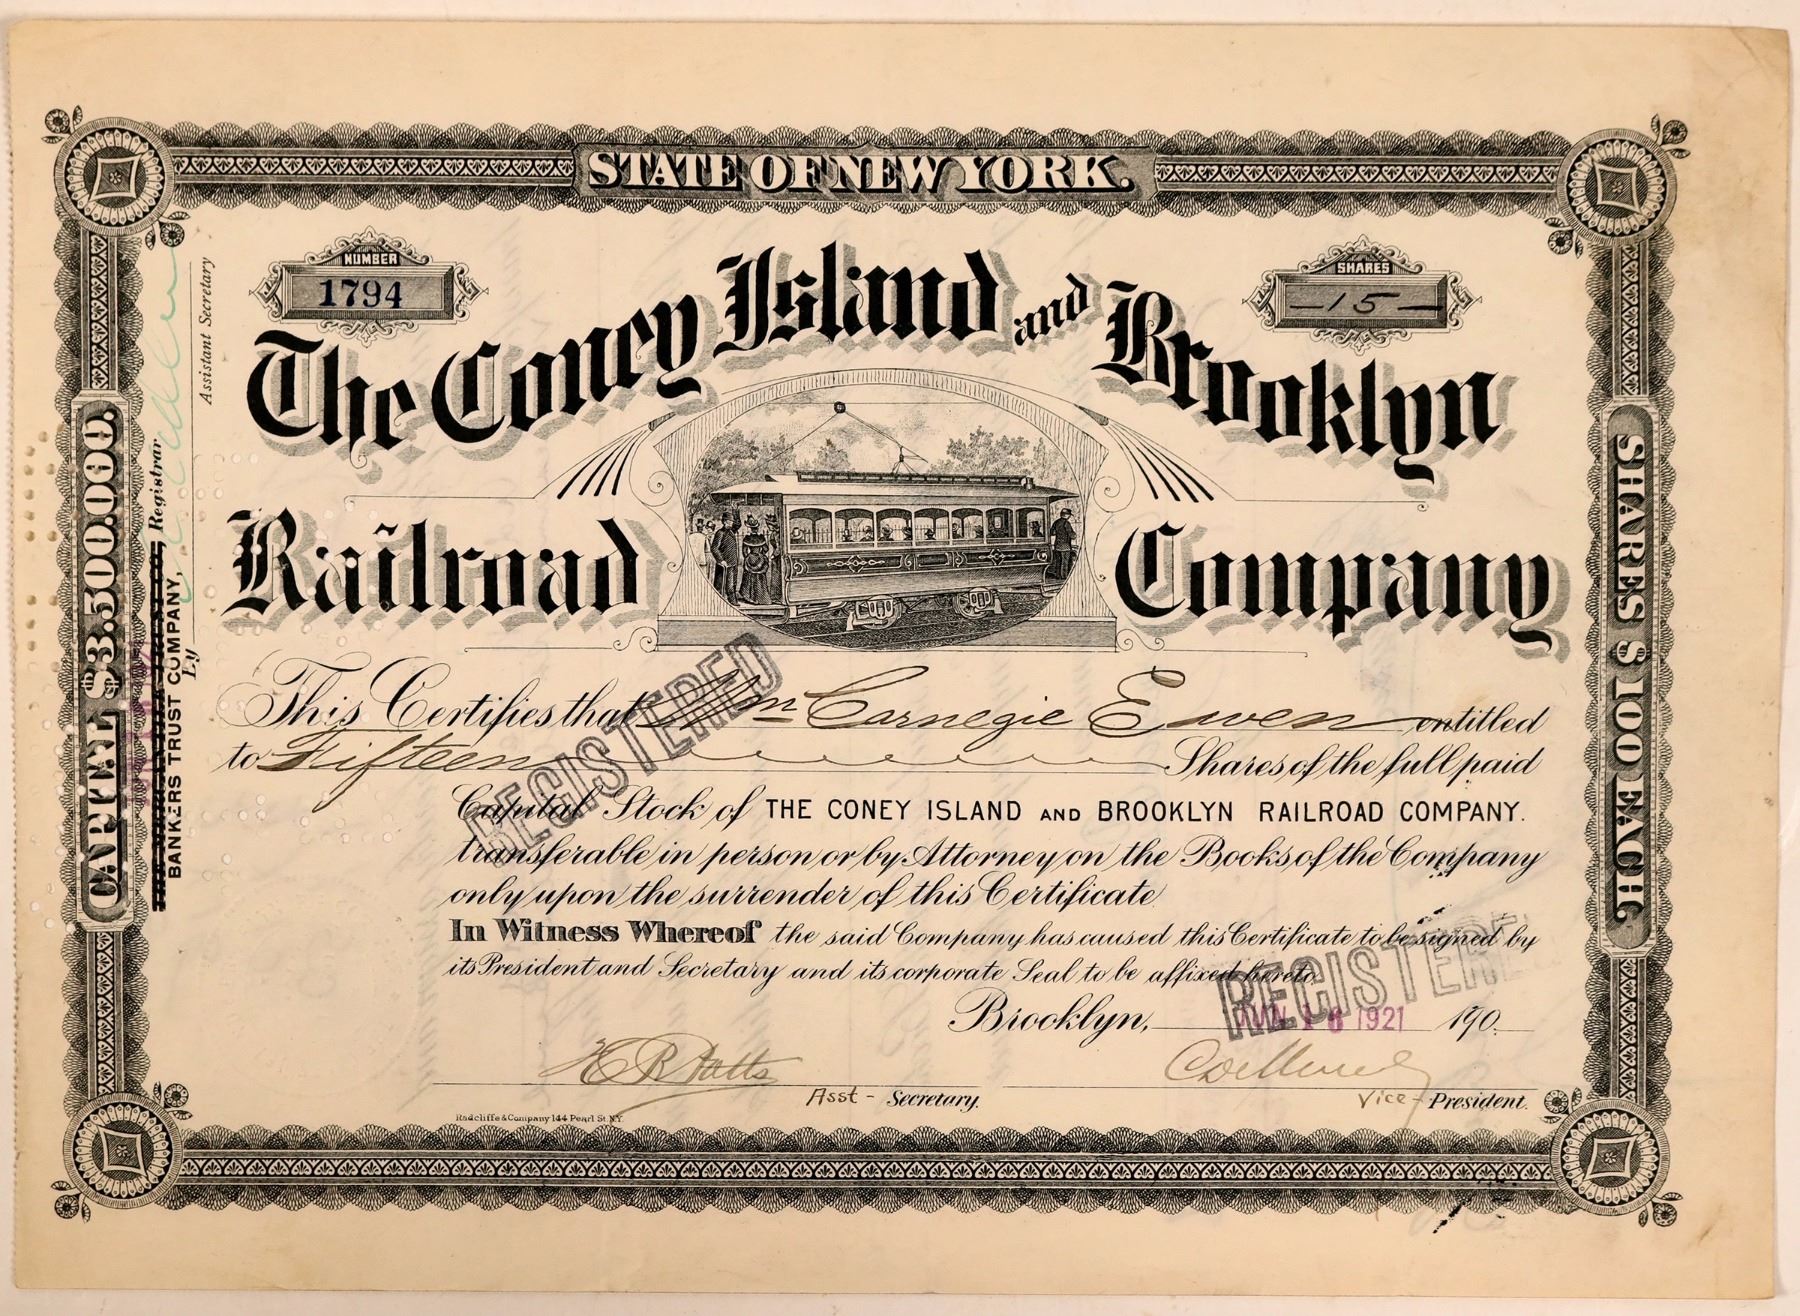 STATE OF NEW YORK.
NUMBER
1794
SHARES
—15—
The Coney Island and Brooklyn
Railroad Company
This Certifies that Wm Carnegie Ewen entitled
to Fifteen Shares of the full paid
Capital Stock of THE CONEY ISLAND AND BROOKLYN RAILROAD COMPANY.
transferable in person or by Attorney on the Books of the Company
only upon the surrender of this Certificate
In Witness Whereof the said Company has caused this Certificate to be signed by
its President and Secretary and its corporate Seal to be affixed hereto.
Brooklyn, 16 1921 190
Asst - Secretary.
Vice - President.
Radcliffe & Company 144 Pearl St N.Y.
REGISTERED
REGISTERED
CAPITAL $3.500.000.
SHARES $100 EACH.
Registrar
BANKERS TRUST COMPANY,
By
Assistant Secretary